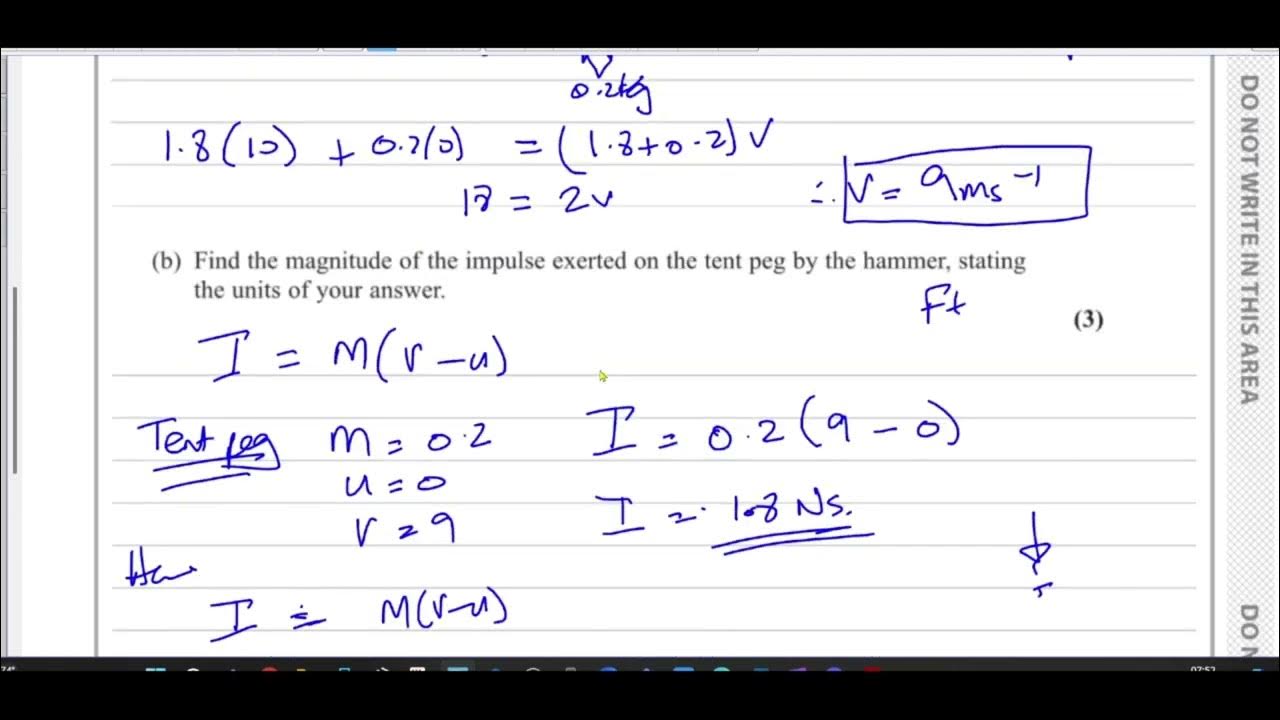 0.2kg
1.8(10) + 0.2(0) = (1.8+0.2)V
18 = 2v
∴ V = 9ms⁻¹
(b) Find the magnitude of the impulse exerted on the tent peg by the hammer, stating
the units of your answer.
Ft
(3)
I = M(v-u)
Tent peg m = 0.2
u = 0
v = 9
I = 0.2(9-0)
I = 1.8 Ns.
I = M(v-u)
DO NOT WRITE IN THIS AREA
DO N
07:52